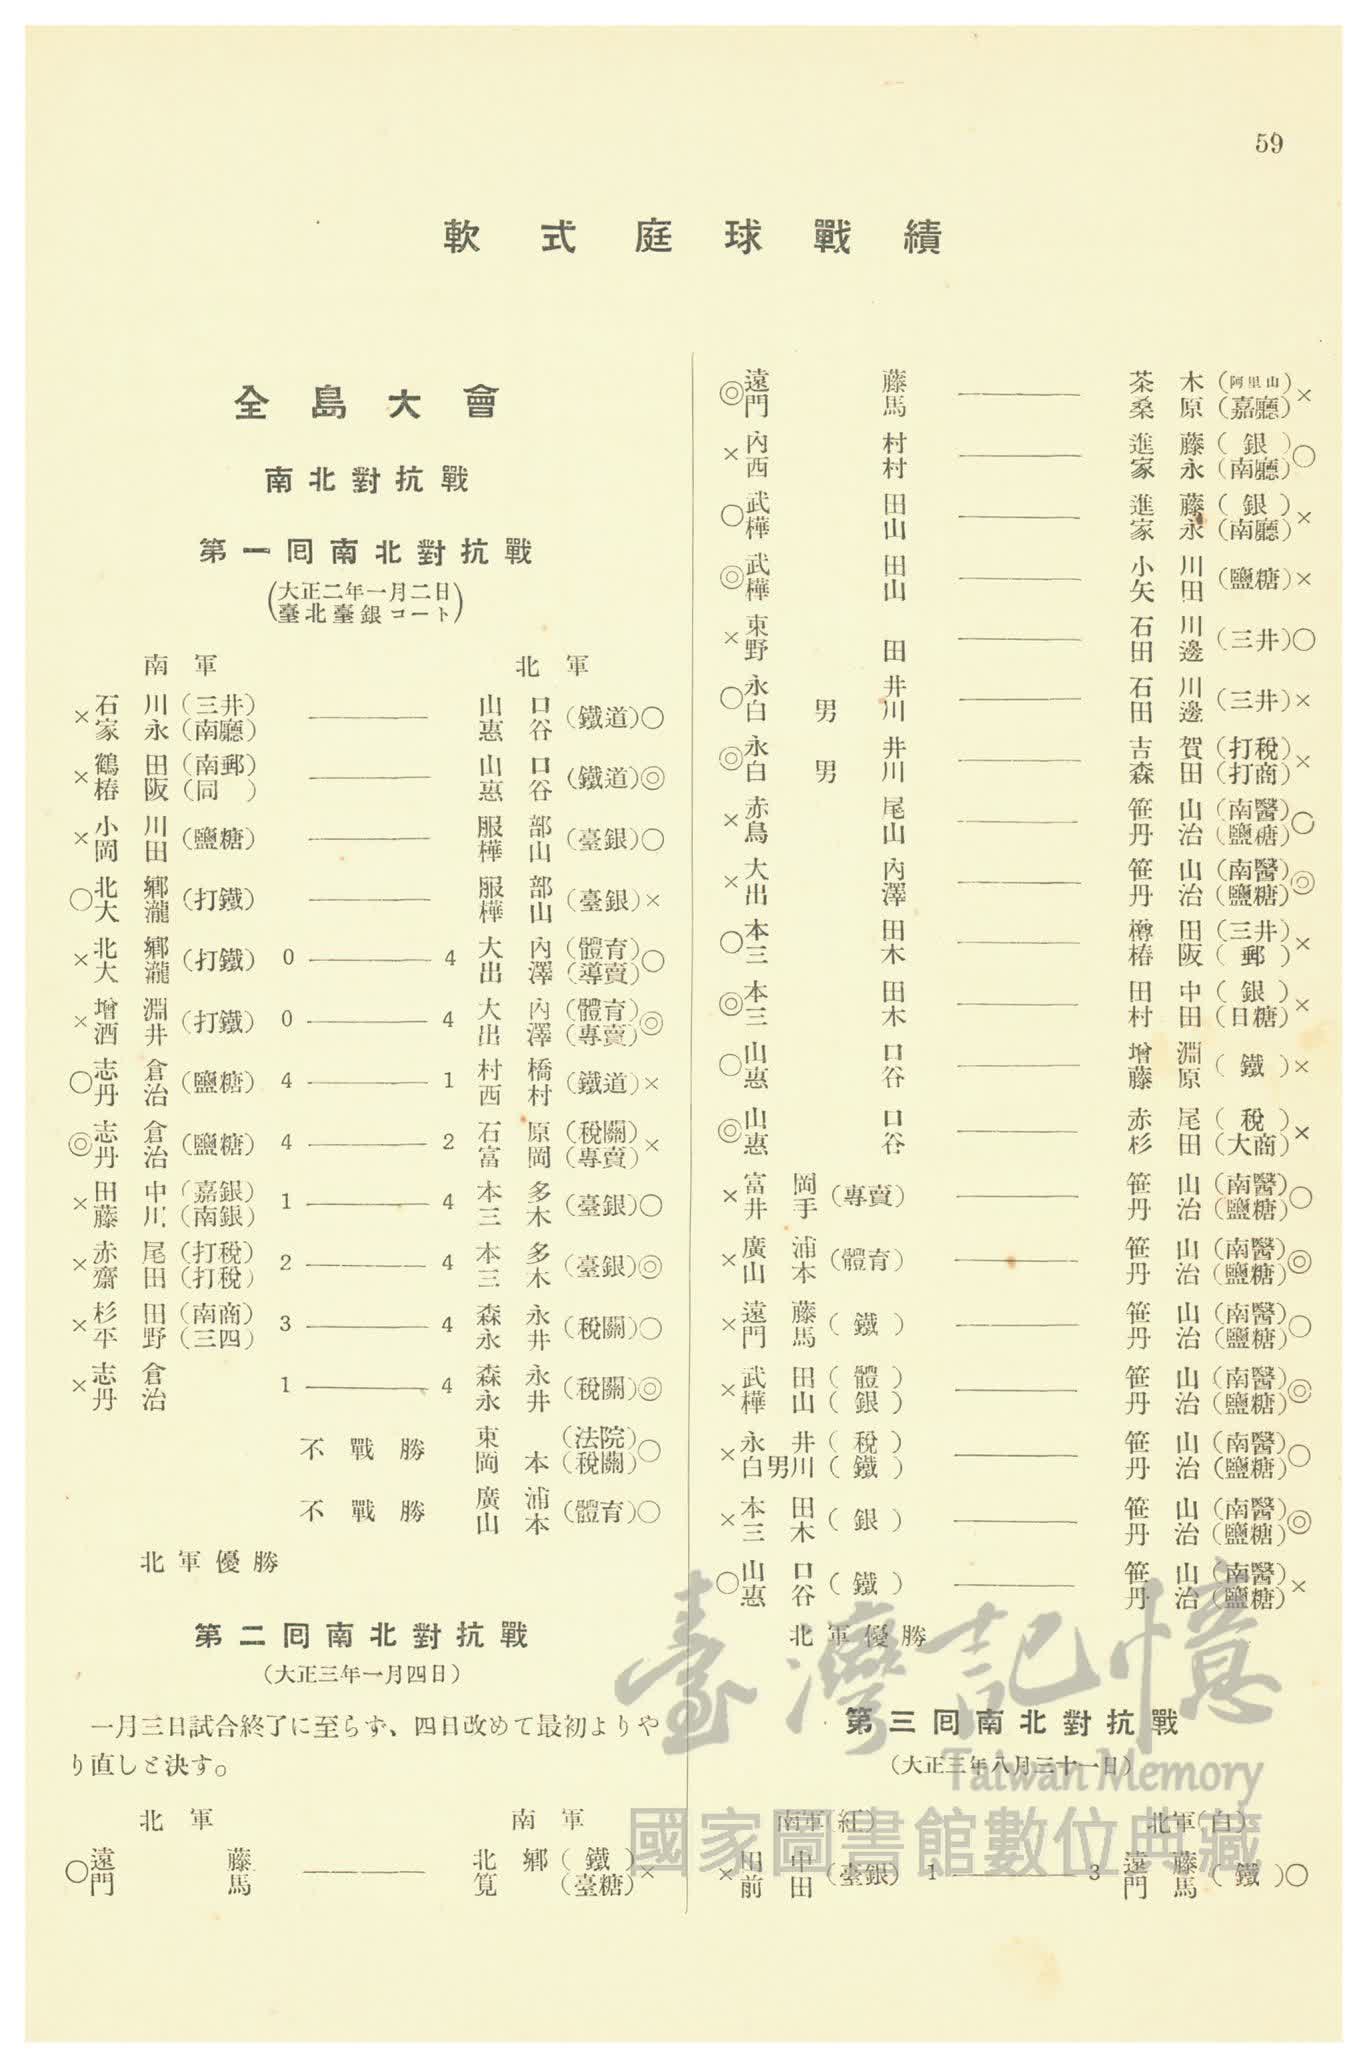 59
軟式庭球戰績
全島大會
南北對抗戰
第一囘南北對抗戰
(大正二年一月二日
臺北臺銀コート)
南軍 北軍
×石川(三井) ―― 山口(鐵道)○
家永(南廳) 惠谷
×鶴田(南郵) ―― 山口(鐵道)◎
椿阪(同) 惠谷
×小川(鹽糖) ―― 服部(臺銀)○
岡田 樺山
○北鄉(打鐵) ―― 服部(臺銀)×
大瀧 樺山
×北鄉(打鐵) 0 ―― 4 大內(體育)○
大瀧 出澤(導賣)
×增淵(打鐵) 0 ―― 4 大內(體育)◎
酒井 出澤(專賣)
○志倉(鹽糖) 4 ―― 1 村橋(鐵道)×
丹治 西村
◎志倉(鹽糖) 4 ―― 2 石原(稅關)×
丹治 富岡(專賣)
×田中(嘉銀) 1 ―― 4 本多(臺銀)○
藤川(南銀) 三木
×赤尾(打稅) 2 ―― 4 本多(臺銀)◎
齋田(打稅) 三木
×杉田(南商) 3 ―― 4 森永(稅關)○
平野(三四) 永井
×志倉 1 ―― 4 森永(稅關)◎
丹治 永井
不戰勝 東(法院)○
岡本(稅關)
不戰勝 廣浦(體育)○
山本
北軍優勝
第二囘南北對抗戰
(大正三年一月四日)
一月三日試合終了に至らず、四日改めて最初よりや
り直しと決す。
北軍 南軍
○遠藤 ―― 北鄉(鐵)×
門馬 筧(臺糖)
◎遠藤 ―― 茶木(阿里山)×
門馬 桑原(嘉廳)
×內村 ―― 進藤(銀)○
西村 家永(南廳)
○武田 ―― 進藤(銀)×
樺山 家永(南廳)
◎武田 ―― 小川(鹽糖)×
樺山 矢田
×東 ―― 石川(三井)○
野田 田邊
○永井 ―― 石川(三井)×
白男川 田邊
◎永井 ―― 吉賀(打稅)×
白男川 森田(打商)
×赤尾 ―― 笹山(南醫)○
鳥山 丹治(鹽糖)
×大內 ―― 笹山(南醫)◎
出澤 丹治(鹽糖)
○本田 ―― 樽田(三井)×
三木 椿阪(郵)
◎本田 ―― 田中(銀)×
三木 村田(日糖)
○山口 ―― 增淵(鐵)×
惠谷 藤原
◎山口 ―― 赤尾(稅)×
惠谷 杉田(大商)
×富岡(專賣) ―― 笹山(南醫)○
井手 丹治(鹽糖)
×廣浦(體育) ―― 笹山(南醫)◎
山本 丹治(鹽糖)
×遠藤(鐵) ―― 笹山(南醫)○
門馬 丹治(鹽糖)
×武田(體) ―― 笹山(南醫)◎
樺山(銀) 丹治(鹽糖)
×永井(稅) ―― 笹山(南醫)○
白男川(鐵) 丹治(鹽糖)
×本田(銀) ―― 笹山(南醫)◎
三木 丹治(鹽糖)
○山口(鐵) ―― 笹山(南醫)×
惠谷 丹治(鹽糖)
北軍優勝
第三囘南北對抗戰
(大正三年八月三十一日)
南軍(紅) 北軍(白)
×田中(臺銀) 1 ―― 3 遠藤(鐵)○
前田 門馬
臺灣記憶
Taiwan Memory
國家圖書館數位典藏